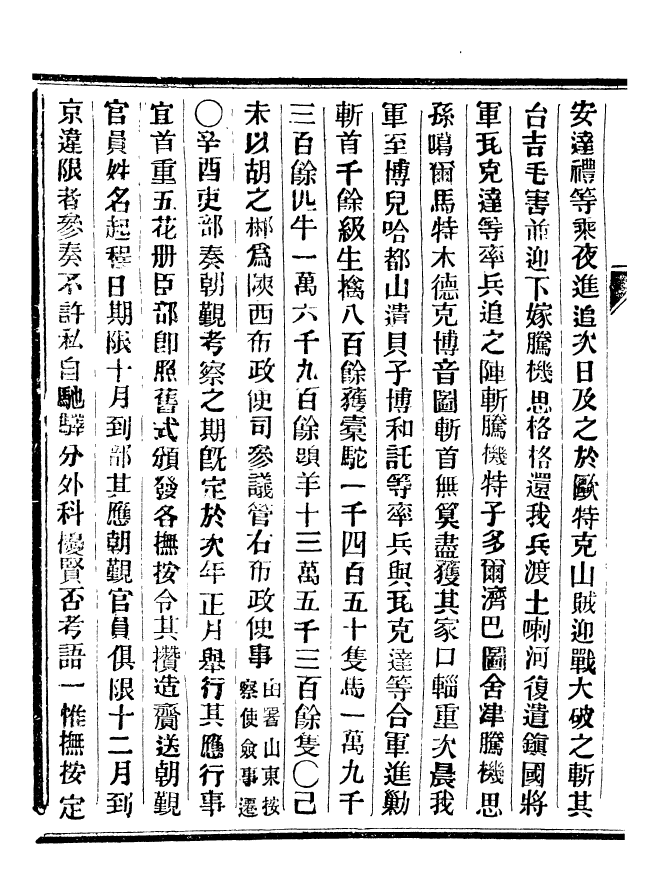 安達禮等乘夜進追次日及之於歐特克山賊迎戰大破之斬其
台吉毛害並迎下嫁騰機思格格還我兵渡土喇河復遣鎭國將
軍瓦克達等率兵追之陣斬騰機特子多爾濟巴圖舍津騰機思
孫噶爾馬特木德克博音圖斬首無算盡獲其家口輜重次晨我
軍至博兒哈都山遣貝子博和託等率兵與瓦克達等合軍進勦
斬首千餘級生擒八百餘獲橐駝一千四百五十隻馬一萬九千
三百餘匹牛一萬六千九百餘頭羊十三萬五千三百餘隻〇己
未以胡之彬爲陝西布政使司參議管右布政使事由署山東按察使僉事遷
〇辛酉吏部奏朝覲考察之期既定於次年正月舉行其應行事
宜首重五花册臣部卽照舊式頒發各撫按令其攢造齎送朝覲
官員姓名起程日期限十月到部其應朝覲官員俱限十二月到
京違限者參奏不許私自馳驛分外科擾賢否考語一惟撫按定